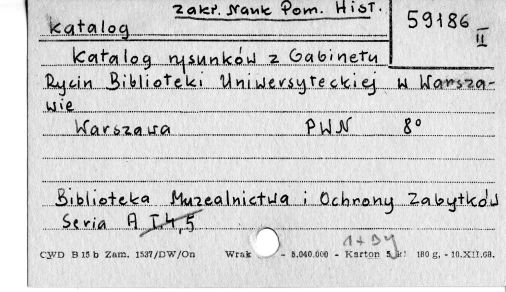 zakr. Nauk Pom. Hist.
59186
II
Katalog
Katalog rysunków z Gabinetu
Rycin Biblioteki Uniwersyteckiej w Warsza-
wie
Warszawa PWN 8°
Biblioteka Muzealnictwa i Ochrony Zabytków
Seria A T.4,5
CWD B 15 b Zam. 1537/DW/On Wrak - 5.040.000 - Karton 5 kl 180 g, - 10.XII.68.